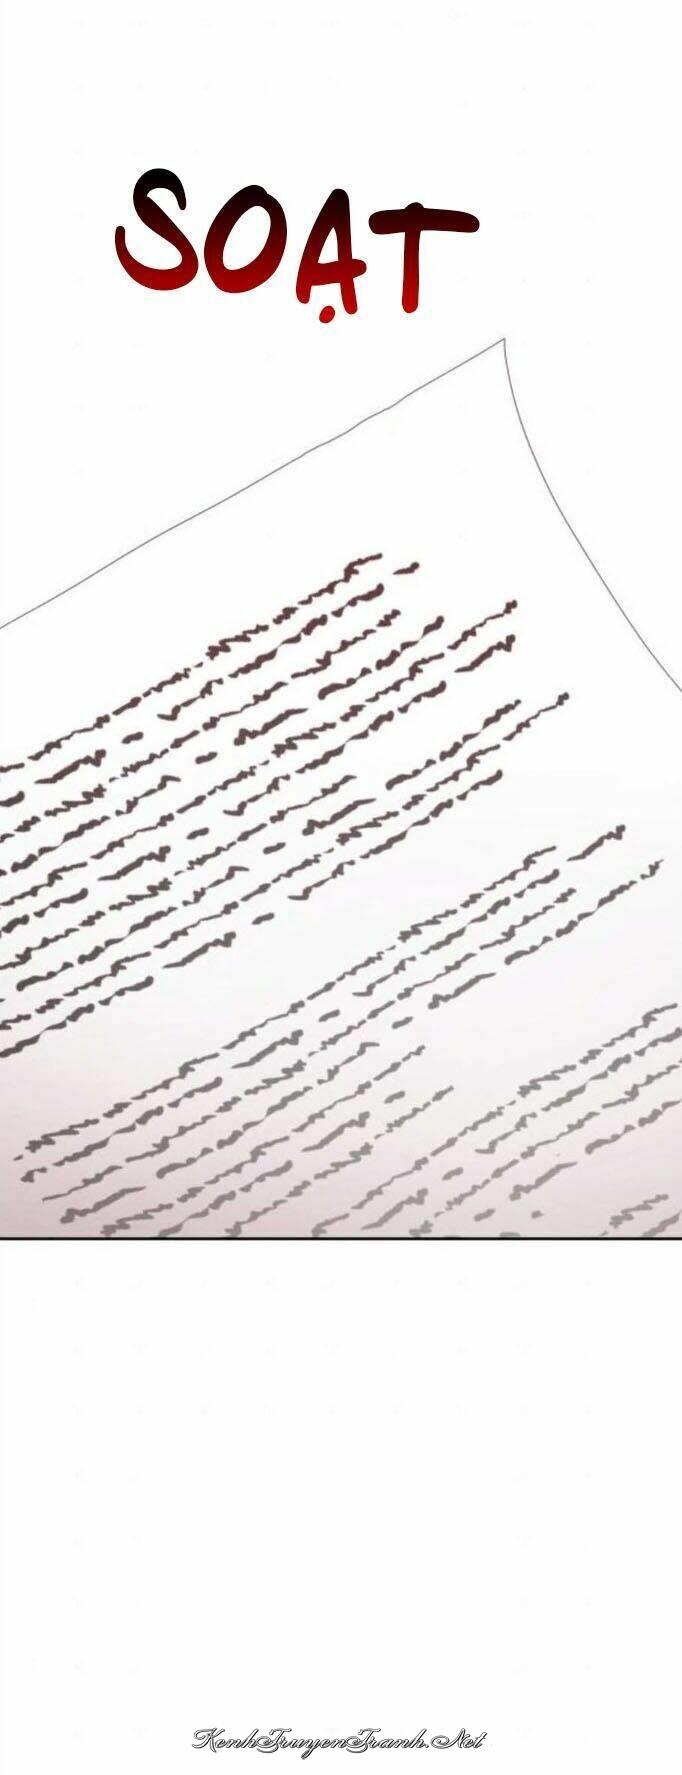 SOẠT
KenhTruyenTranh.Net